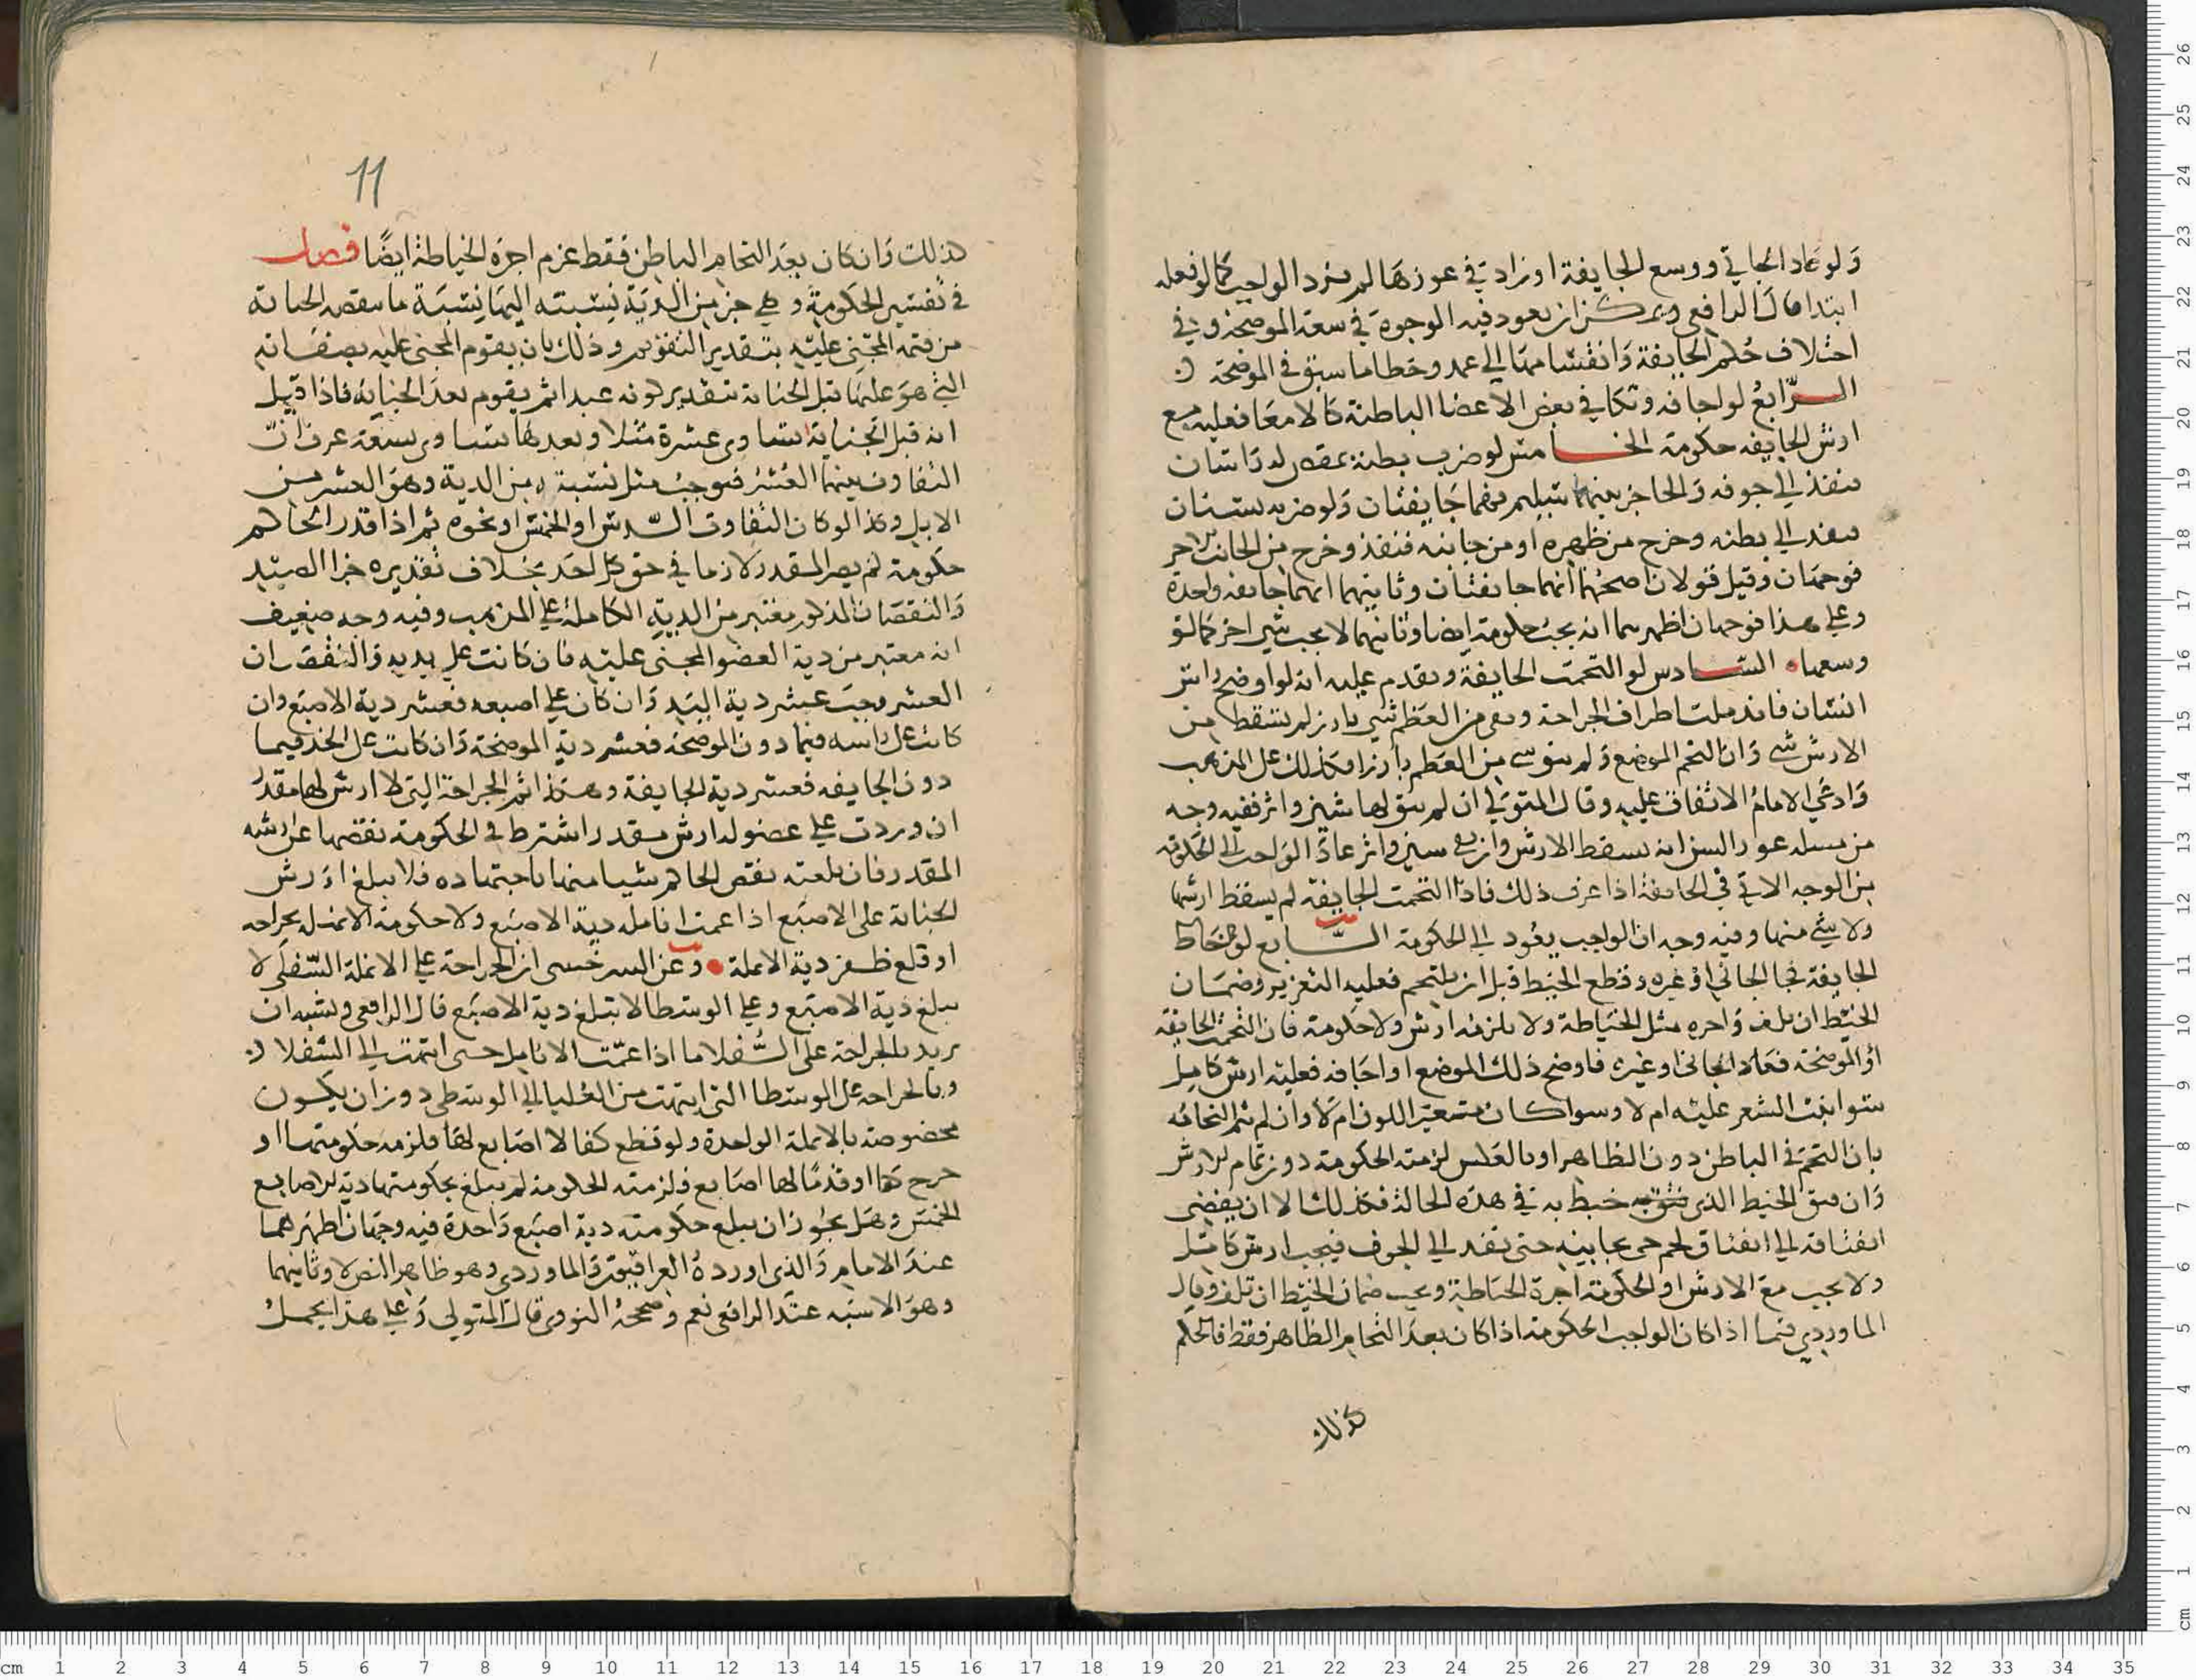 ولو عاد الجاني ووسع الجايفة او زاد في غورها لم يزد الواجب كما لو فعله
ابتدا قال الرافعي ويمكن ان يعود فيه الوجوه في سعة الموضحة وفي
اختلاف حكم الجايفة وانقسامها الى عمد وخطا ما سبق في الموضحة
الرابع لو اجافه ونكا في بعض الاعضا الباطنة كالامعا فعليه مع
ارش الجايفه حكومة الخامس لو ضرب بطنه بمقص له راسان
فنفذ الى جوفه والحاجز بينهما سليم فهما جايفتان ولو ضربه بسنان
فنفد الى بطنه وخرج من ظهره او من جانبه فنفذ وخرج من الجانب الاخر
فوجهان وقيل قولان اصحهما انهما جايفتان وثانيهما انهما جايفه واحدة
وعلى هذا فوجهان اظهرهما انه يجب حكومة ايضا وثانيهما لا يجب شي اخر كما لو
وسعها السادس لو التحمت الجايفة وتقدم عليه انه لو اوضح راس
انسان فاندملت اطراف الجراحة وبقي من العظم شي بارز لم يسقط من
الارش شي وان التحم الموضع ولم يبق شي من العظم بارزا فكذلك على المذهب
وادعى الامام الاتفاق عليه وقال المتولي ان لم يبق لها شين واثر ففيه وجه
من مسله عود السن انه يسقط الارش وان بقي شين واثر عاد الواجب الى الحكومة
من الوجه الاتي في الجايفة اذا عرف ذلك فاذا التحمت الجايفة لم يسقط ارشها
ولا شي منها وفيه وجه ان الواجب يعود الى الحكومة السابع لو خاط
الجايفة فجا الجاني او غيره وقطع الخيط قبل ان يلتحم فعليه التعزير وضمان
الخيط ان تلف واجره مثل الخياطة ولا يلزمه ارش ولا حكومة فان التحمت الجايفة
او الموضحة فعاد الجاني او غيره فاوضح ذلك الموضع او اجافه فعليه ارش كامل
سوا نبت الشعر عليه ام لا وسوا كان متغير اللون ام لا وان لم يتم التحامه
بان التحم في الباطن دون الظاهر او بالعكس لزمته الحكومة دون تمام الارش
وان شق الخيط الذي خيط به في هذه الحالة فكذلك الا ان يفضي
انفتاقه الى انفتاق لحم حي بجانبيه حتى نفد الى الجوف فيجب ارش كامل
ولا يجب مع الارش او الحكومة اجرة الخياطة ويجب ضمان الخيط ان تلف وقال
الماوردي فيما اذا كان الواجب الحكومة اذا كان بعد التحام الظاهر فقط فالحكم
كذلك
11
كذلك وان كان بعد التحام الباطن فقط غرم اجرة الخياطة ايضا فصل
في تفسير الحكومة وهي جز من الدية نسبته اليها نسبة ما ينقصه الجناية
من قيمة المجني عليه بتقدير التقويم وذلك بان يقوم المجني عليه بصفاته
التي هو عليها قبل الجناية بتقدير كونه عبدا ثم يقوم بعد الجناية فاذا قيل
انه قبل الجناية يساوي عشرة مثلا وبعدها يساوي تسعة عرف ان
التفاوت بينهما العشر فيوجب مثل نسبته من الدية وهو العشر من
الابل وكذا لو كان التفاوت السدس او الخمس او نحوه ثم اذا قدر الحاكم
حكومة لم يصر المقدر لازما في حق كل احد بخلاف تقديره جزا الصيد
والنقصان المذكور معتبر من الدية الكاملة على المذهب وفيه وجه ضعيف
انه معتبر من دية العضو المجني عليه فان كانت على يديه والنقصان
العشر وجب عشر دية اليد وان كان على اصبعه فعشر دية الاصبع وان
كانت على راسه فيما دون الموضحة فعشر دية الموضحة وان كانت على الخد فيما
دون الجايفه فعشر دية الجايفة وهذا ثم الجراحة التي لا ارش لها مقدر
ان وردت على عضو له ارش مقدر اشترط في الحكومة نقصها عن ارشه
المقدر فان بلعته نقص الحاكم شيا منها باجتهاده فلا يبلغ ارش
الجناية على الاصبع اذا عمت انامله دية الاصبع ولا حكومة الانمله بجراحه
او قلع ظفر دية الانملة وعن السرخسي ان الجراحة على الانملة السفلى لا
يبلغ دية الاصبع وعلى الوسطا لا تبلغ دية الاصبع قال الرافعي ويشبه ان
يريد بالجراحة على السفلا ما اذا عمت الانامل حتى انتهت الى السفلا
وبالجراحه على الوسطا التي انتهت من العليا الى الوسطى دون ان يكون
مخصوصة بالانملة الواحدة ولو قطع كفا لا اصابع لها فلزمه حكومتها او
جرحها او قدما لها اصابع فلزمته الحكومة لم يبلغ بحكومتها دية الاصابع
الخمس وهل يجوز ان يبلغ حكومته دية اصبع واحدة فيه وجهان اظهرهما
عند الامام والذي اورده العراقيون والماوردي وهو ظاهر النص لا وثانيهما
وهو الاشبه عند الرافعي نعم وصححه النووي قال المتولي وعلى هذا يحمل